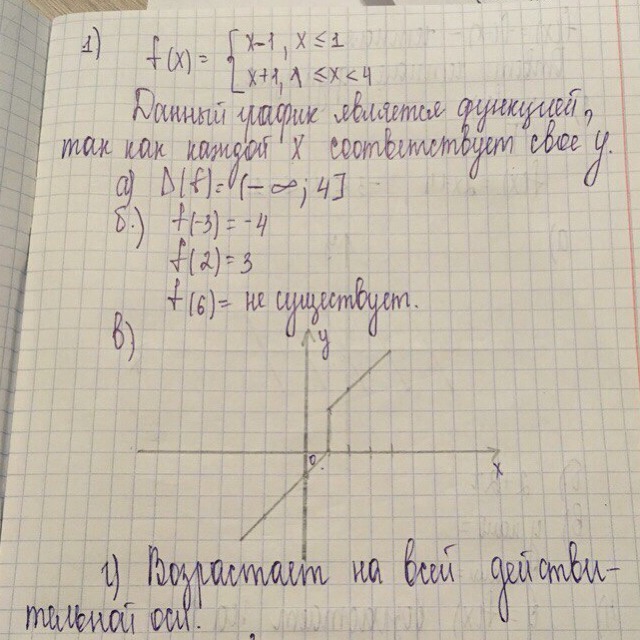 1) f(x) = { x-1, x ≤ 1
x+1, 1 ≤ x < 4
Данный график является функцией,
так как каждой X соответствует свое y.
а) D(f)=(-∞; 4]
б.) f(-3) = -4
f(2) = 3
f(6) = не существует.
в)
y
0
x
г) Возрастает на всей действи-
тельной оси.